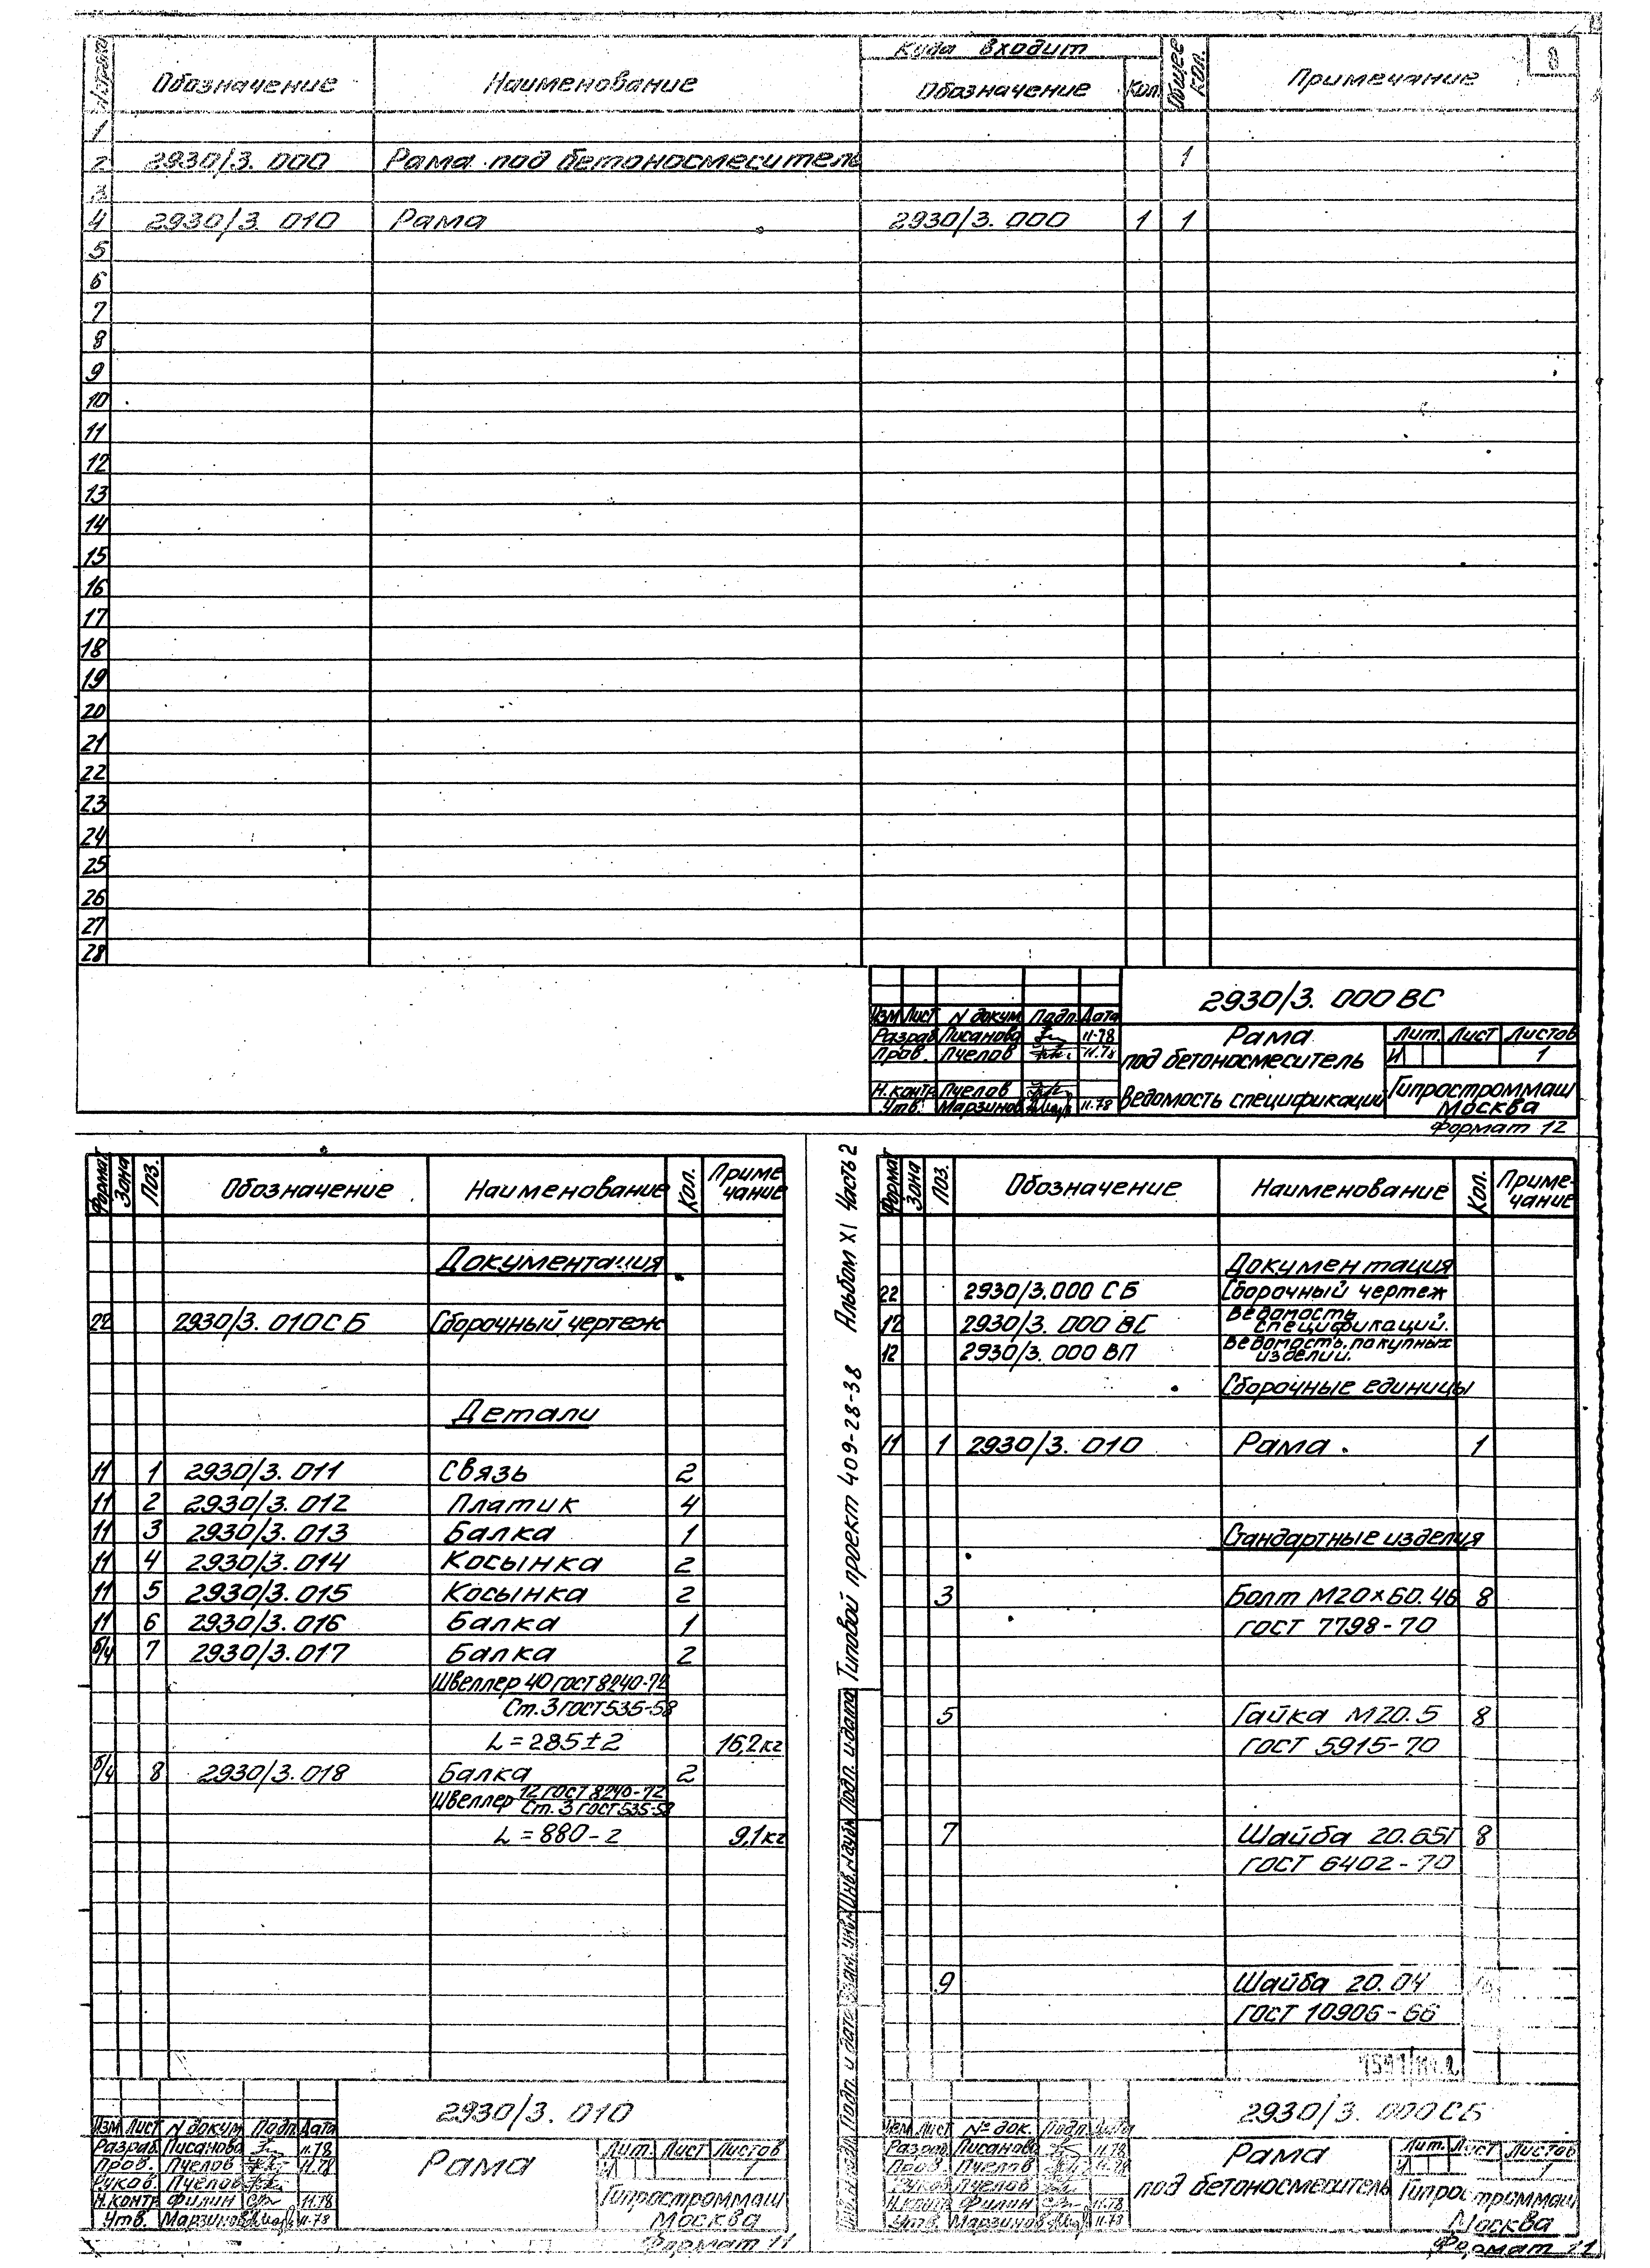 8
№ строки Обозначение Наименование Куда входит Общее кол. Примечание
Обозначение Кол.
1
2 2930/3. 000 Рама под бетоносмеситель 1
3
4 2930/3. 010 Рама 2930/3. 000 1 1
5
6
7
8
9
10
11
12
13
14
15
16
17
18
19
20
21
22
23
24
25
26
27
28
2930/3. 000 ВС
Изм Лист N докум Подп. Дата
Разраб Писанова 11-78
Пров. Пчелов 11.78
Н.контр Пчелов
Утв. Марзинов 11.78
Рама
под бетоносмеситель
Ведомость спецификаций
Лит. Лист Листов
И 1
Гипростроммаш
Москва
Формат 12
Формат Зона Поз. Обозначение Наименование Кол. Приме
чание
Документация
22 2930/3. 010 СБ Сборочный чертеж
Детали
11 1 2930/3. 011 Связь 2
11 2 2930/3. 012 Платик 4
11 3 2930/3. 013 Балка 1
11 4 2930/3. 014 Косынка 2
11 5 2930/3. 015 Косынка 2
11 6 2930/3. 016 Балка 1
б/ч 7 2930/3. 017 Балка 2
Швеллер 40 ГОСТ 8240-72
Ст. 3 ГОСТ 535-58
L = 285±2 16,2кг
б/ч 8 2930/3. 018 Балка 2
Швеллер 12 ГОСТ 8240-72
Ст. 3 ГОСТ 535-58
L = 880-2 9,1кг
2930/3. 010
Изм Лист N докум Подп. Дата
Разраб. Писанова 11.78
Пров. Пчелов 11.78
Руков. Пчелов
Н.контр Филин 11.78
Утв. Марзинов 11.78
Рама
Лит. Лист Листов
И 1
Гипростроммаш
Москва
Формат 11
Типовой проект 409-28-38 Альбом XI Часть 2
Инв. N подл. Подп. и дата Взам. инв. N Инв. N дубл. Подп. и дата
Формат Зона Поз. Обозначение Наименование Кол. Приме-
чание
Документация
22 2930/3.000 СБ Сборочный чертеж
12 2930/3. 000 ВС Ведомость
спецификаций.
12 2930/3. 000 ВП Ведомость покупных
изделий.
Сборочные единицы
11 1 2930/3. 010 Рама. 1
Стандартные изделия
3 Болт М20×60.46 8
ГОСТ 7798-70
5 Гайка М20.5 8
ГОСТ 5915-70
7 Шайба 20.65Г 8
ГОСТ 6402-70
9 Шайба 20.04
ГОСТ 10906-66
2930/3. 000СБ
Изм Лист № док. Подп. Дата
Разраб Писанова 11.78
Пров Пчелов 11.78
Руков Пчелов
Н.контр Филин 11.78
Утв. Марзинов 11.78
Рама
под бетоносмеситель
Лит. Лист Листов
И 1
Гипростроммаш
Москва
Формат 11